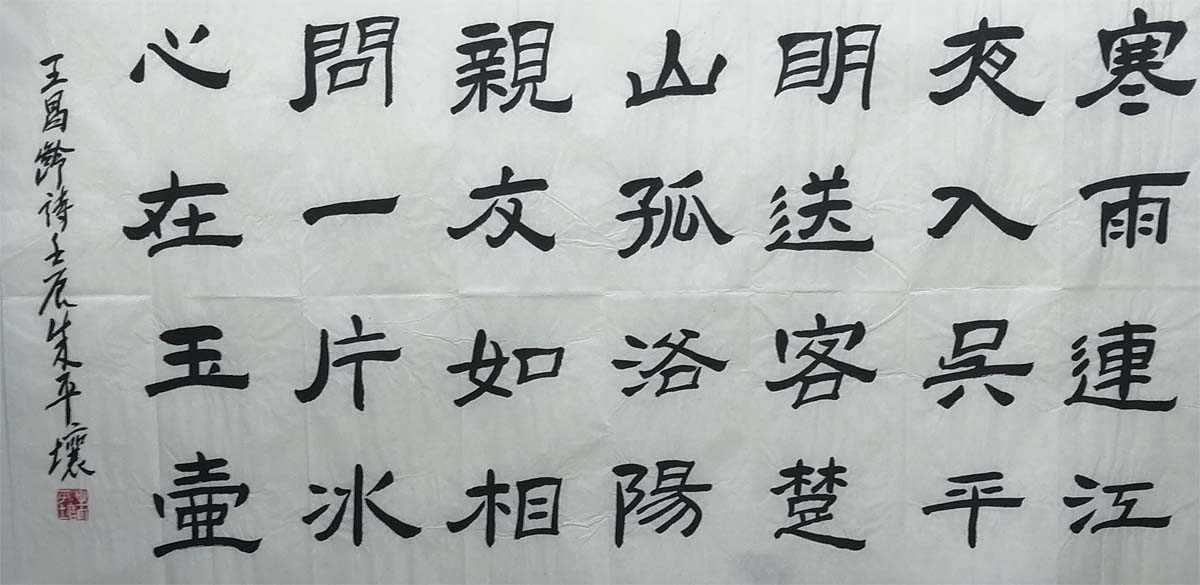 寒雨連江
夜入吳平
明送客楚
山孤洛陽
親友如相
問一片冰
心在玉壺
王昌齡詩壬辰朱平壤